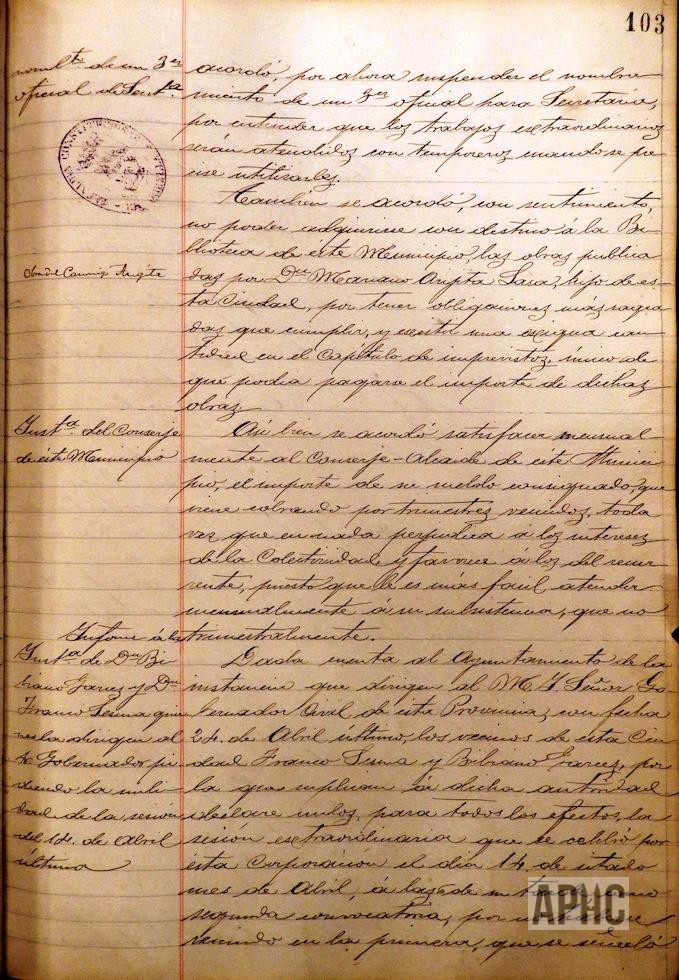 103
nomb.to de un 3er
oficial de Sect.a
acordó, por ahora suspender el nombra
miento de un 3er oficial para Secretaría,
por entender que los trabajos extraordinarios
serán atendidos con temporeros cuando se pre
cise utilizarlos.
Obras del Canonigo Arigita
Tambien se acordó, con sentimiento,
no poder adquirirse con destino á la Bi-
blioteca de este Municipio, las obras publica
das por Dn Mariano Arigita Lasa, hijo de es-
ta Ciudad, por tener obligaciones más sagra
das que cumplir, y existir una exigua can-
tidad en el Capítulo de imprevistos, único de
que podia pagarse el importe de dichas
obras
Inst.a del Conserje
de este Municipio
Asi bien se acordó satisfacer mensual-
mente al Conserje-Alcaide de este Munici
pio, el importe de su sueldo consignado, que
viene cobrando por trimestres vencidos, toda
vez que en nada perjudica á los intereses
de la Colectividad y favorece á los del recur
rente, puesto que le es más facil atender
mensualmente á su subsistencia, que no
trimestralmente.
Informe á la
Inst.a de Dn Bi-
biano Garcez y Dn
Franco Sesma quie
nes la dirigen al
Sr Gobernador pi
diendo la nuli-
dad de la sesión
del 14. de Abril
último
Dada cuenta al Ayuntamiento de la
instancia que dirigen al M. I. Señor Go-
bernador Civil de esta Provincia, con fecha
24. de Abril último, los vecinos de esta Ciu
dad Franco Sesma y Bibiano Garcez, por
la que suplican á dicha autoridad
declare nulos, para todos los efectos, la
sesión extraordinaria que se celebró por
esta Corporacion el día 14. de citado
mes de Abril, á las 6 de su tarde, como
segunda convocatoria, por no haberse
reunido en la primera, que se señaló
APHC